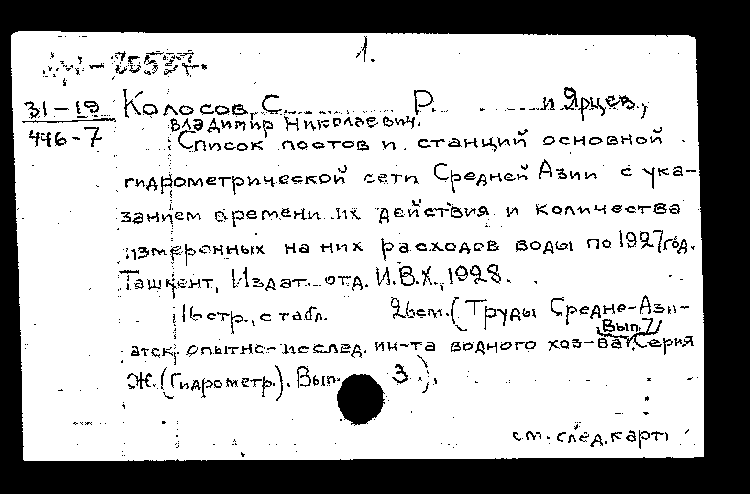 1.
– 20527.
31–19
446–7
Колосов, С. Р. и Ярцев,
Владимир Николаевич.
Список постов и станций основной
гидрометрической сети Средней Азии с ука-
занием времени их действия и количества
измеренных на них расходов воды по 1927 год.
Ташкент, Издат. отд. И.В.Х., 1928.
16 стр., с табл. 26 см. (Труды Средне-Ази-
Вып. 7
атск. опытно-исслед. ин-та водного хоз-ва, Серия
Ж. (Гидрометр.). Вып. 3.),
см. след. карт